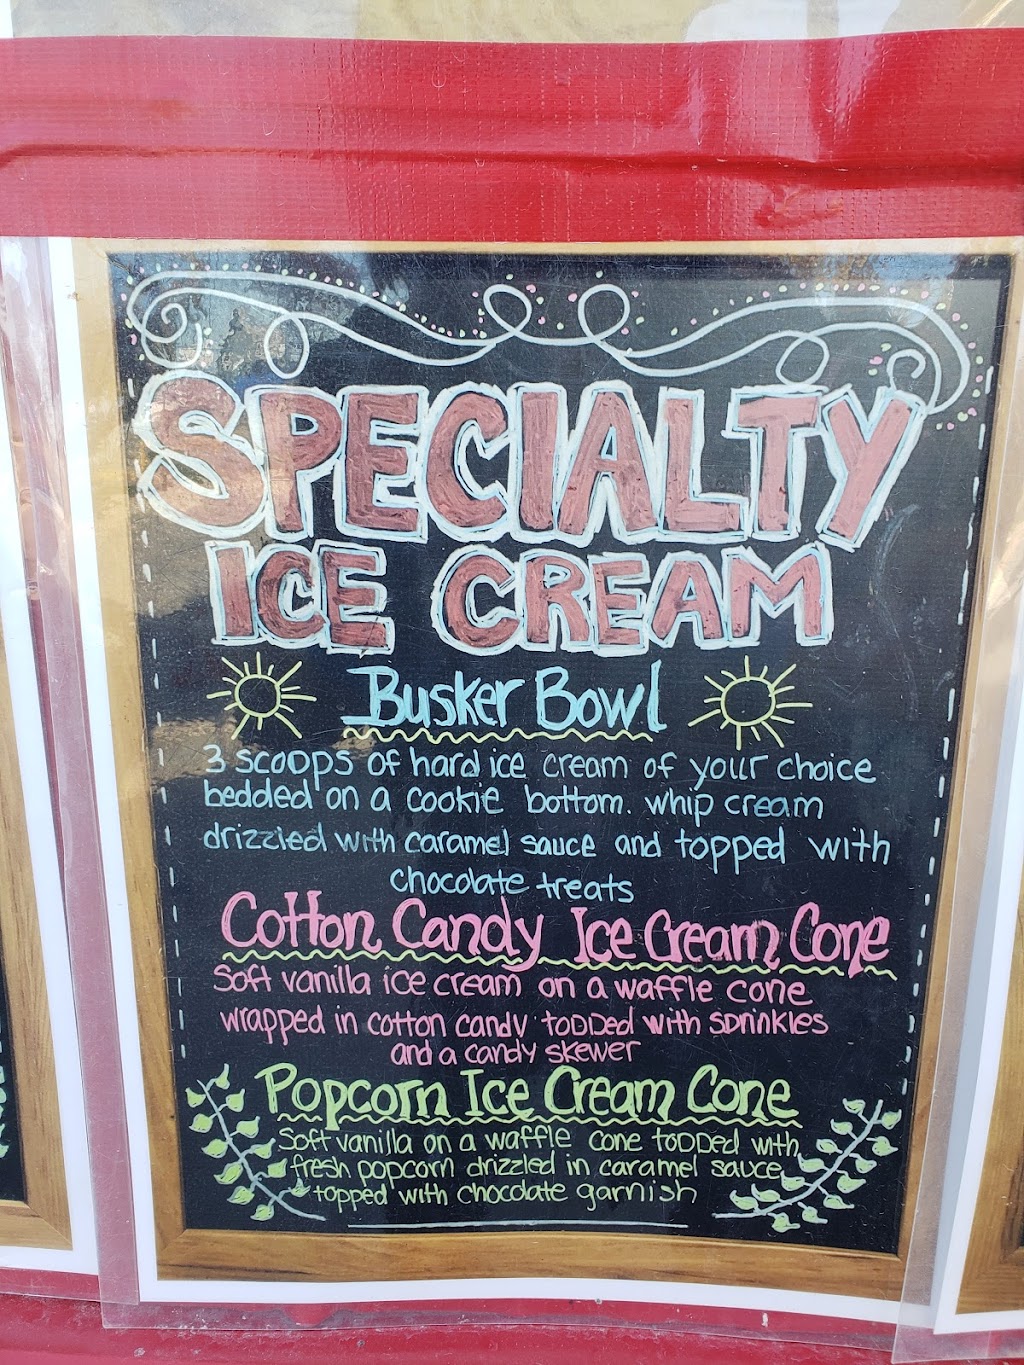 SPECIALTY
ICE CREAM
Busker Bowl
3 scoops of hard ice cream of your choice
bedded on a cookie bottom. whip cream
drizzled with caramel sauce and topped with
chocolate treats
Cotton Candy Ice Cream Cone
Soft vanilla ice cream on a waffle cone
wrapped in cotton candy topped with sprinkles
and a candy skewer
Popcorn Ice Cream Cone
Soft vanilla on a waffle cone topped with
fresh popcorn drizzled in caramel sauce
topped with chocolate garnish